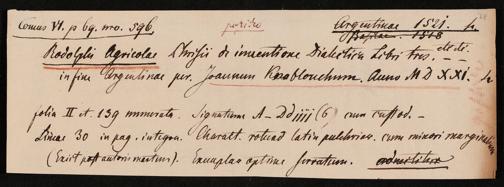 Comus VI. p 69. nro. 596. Argentinae 1521. 4.
Basileae. 1518
Rodolphi Agricolae Phrisii de inventione Dialectica Libri tres.
in fine Argentinae per. Joannem Knoblouchum. Anno MDXXI. 4.
folia II et. 139 numerata. Signaturae A - Dd iiii (6) cum custod.
Lineae 30 in pag. integra. Charact. rotund latin pulchrior. cum minori marginali
(Exiit post autoris mortem). Exemplar optime servatum.